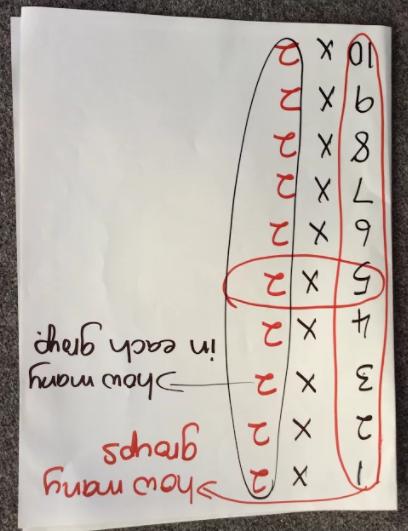 1 x 2 → how many
groups
2 x 2
3 x 2 → how many
in each group.
4 x 2
5 x 2
6 x 2
7 x 2
8 x 2
9 x 2
10 x 2